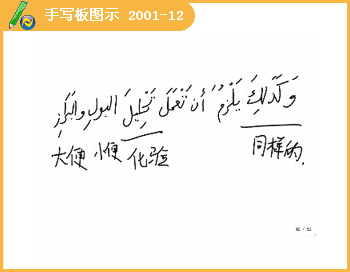 手写板图示 2001-12
وَكَذَلِكَ يَلْزَمُ أَنْ تَعْمَلَ تَحْلِيلَ البولِ والبَرَازِ
大便 小便 化验 同样的.
02 / 02